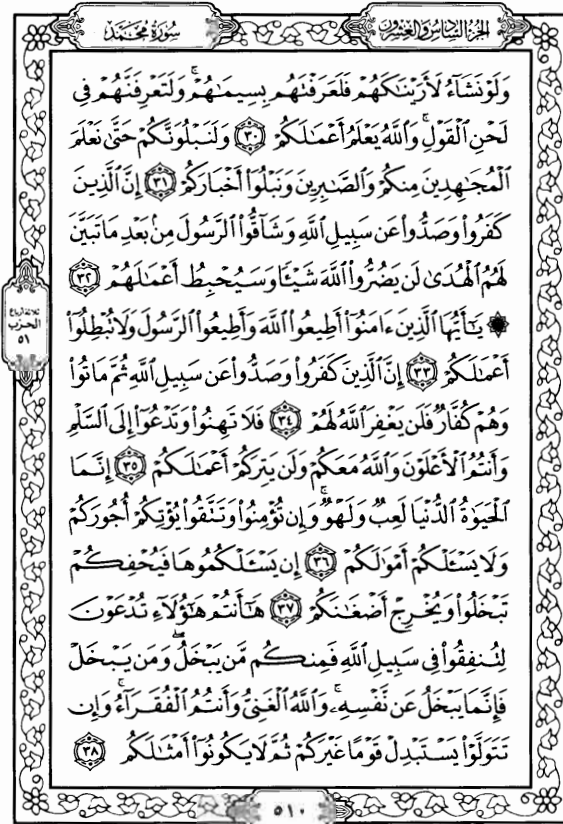 سُورَةُ مُحَمَّدٍ
الجُزْءُ السَّادِسُ وَالعِشْرُونَ
وَلَوْ نَشَآءُ لَأَرَيْنَٰكَهُمْ فَلَعَرَفْتَهُم بِسِيمَٰهُمْ ۚ وَلَتَعْرِفَنَّهُمْ فِى
لَحْنِ ٱلْقَوْلِ ۚ وَٱللَّهُ يَعْلَمُ أَعْمَٰلَكُمْ ٣٠ وَلَنَبْلُوَنَّكُمْ حَتَّىٰ نَعْلَمَ
ٱلْمُجَٰهِدِينَ مِنكُمْ وَٱلصَّٰبِرِينَ وَنَبْلُوَا۟ أَخْبَارَكُمْ ٣١ إِنَّ ٱلَّذِينَ
كَفَرُوا۟ وَصَدُّوا۟ عَن سَبِيلِ ٱللَّهِ وَشَآقُّوا۟ ٱلرَّسُولَ مِنۢ بَعْدِ مَا تَبَيَّنَ
لَهُمُ ٱلْهُدَىٰ لَن يَضُرُّوا۟ ٱللَّهَ شَيْـًٔا وَسَيُحْبِطُ أَعْمَٰلَهُمْ ٣٢
ثلاثة أرباع
الحزب
٥١
۞ يَٰٓأَيُّهَا ٱلَّذِينَ ءَامَنُوٓا۟ أَطِيعُوا۟ ٱللَّهَ وَأَطِيعُوا۟ ٱلرَّسُولَ وَلَا تُبْطِلُوٓا۟
أَعْمَٰلَكُمْ ٣٣ إِنَّ ٱلَّذِينَ كَفَرُوا۟ وَصَدُّوا۟ عَن سَبِيلِ ٱللَّهِ ثُمَّ مَاتُوا۟
وَهُمْ كُفَّارٌ فَلَن يَغْفِرَ ٱللَّهُ لَهُمْ ٣٤ فَلَا تَهِنُوا۟ وَتَدْعُوٓا۟ إِلَى ٱلسَّلْمِ
وَأَنتُمُ ٱلْأَعْلَوْنَ وَٱللَّهُ مَعَكُمْ وَلَن يَتِرَكُمْ أَعْمَٰلَكُمْ ٣٥ إِنَّمَا
ٱلْحَيَوٰةُ ٱلدُّنْيَا لَعِبٌ وَلَهْوٌ ۚ وَإِن تُؤْمِنُوا۟ وَتَتَّقُوا۟ يُؤْتِكُمْ أُجُورَكُمْ
وَلَا يَسْـَٔلْكُمْ أَمْوَٰلَكُمْ ٣٦ إِن يَسْـَٔلْكُمُوهَا فَيُحْفِكُمْ
تَبْخَلُوا۟ وَيُخْرِجْ أَضْغَٰنَكُمْ ٣٧ هَٰٓأَنتُمْ هَٰٓؤُلَآءِ تُدْعَوْنَ
لِتُنفِقُوا۟ فِى سَبِيلِ ٱللَّهِ فَمِنكُم مَّن يَبْخَلُ ۖ وَمَن يَبْخَلْ
فَإِنَّمَا يَبْخَلُ عَن نَّفْسِهِۦ ۚ وَٱللَّهُ ٱلْغَنِىُّ وَأَنتُمُ ٱلْفُقَرَآءُ ۚ وَإِن
تَتَوَلَّوْا۟ يَسْتَبْدِلْ قَوْمًا غَيْرَكُمْ ثُمَّ لَا يَكُونُوٓا۟ أَمْثَٰلَكُم ٣٨
٥١٠